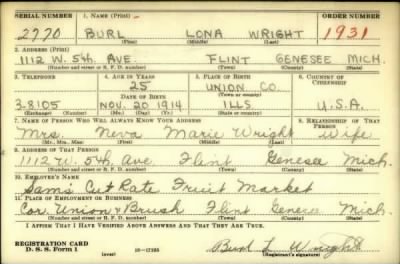 SERIAL NUMBER 1. NAME (Print) ORDER NUMBER
2770 BURL LONA WRIGHT 1931
(First) (Middle) (Last)
2. ADDRESS (Print)
1112 W. 5th. AVE. FLINT GENESEE MICH.
(Number and street or R. F. D. number) (Town) (County) (State)
3. TELEPHONE 4. AGE IN YEARS 5. PLACE OF BIRTH 6. COUNTRY OF CITIZENSHIP
25 UNION CO.
DATE OF BIRTH (Town or county)
3.8105 NOV. 20 1914 ILLS U.S.A.
(Exchange) (Number) (Mo.) (Day) (Yr.) (State or country)
7. NAME OF PERSON WHO WILL ALWAYS KNOW YOUR ADDRESS 8. RELATIONSHIP OF THAT PERSON
Mrs. Neva Marie Wright Wife
(Mr., Mrs., Miss) (First) (Middle) (Last)
9. ADDRESS OF THAT PERSON
1112 W. 5th. Ave Flint Genesee Mich.
(Number and street or R. F. D. number) (Town) (County) (State)
10. EMPLOYER'S NAME
Sam's Cut Rate Fruit Market
11. PLACE OF EMPLOYMENT OR BUSINESS
Cor. Union & Brush Flint Genesee Mich.
(Number and street or R. F. D. number) (Town) (County) (State)
I AFFIRM THAT I HAVE VERIFIED ABOVE ANSWERS AND THAT THEY ARE TRUE.
REGISTRATION CARD
D. S. S. Form 1 (over) Burl L Wright
(Registrant's signature)